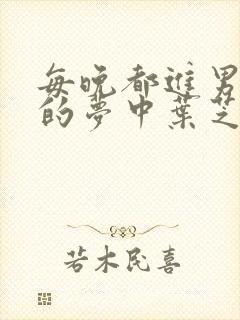 每晚都進男
的夢中葉芝
若木民喜